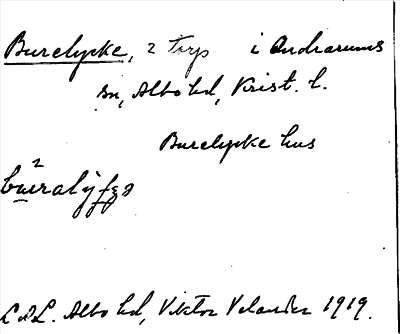 Burelycke, 2 Torp i Andrarums
sn, Albo hd, Krist. l.
Burelycke hus
2
L.A.L. Albo hd, Viktor Velander 1919.